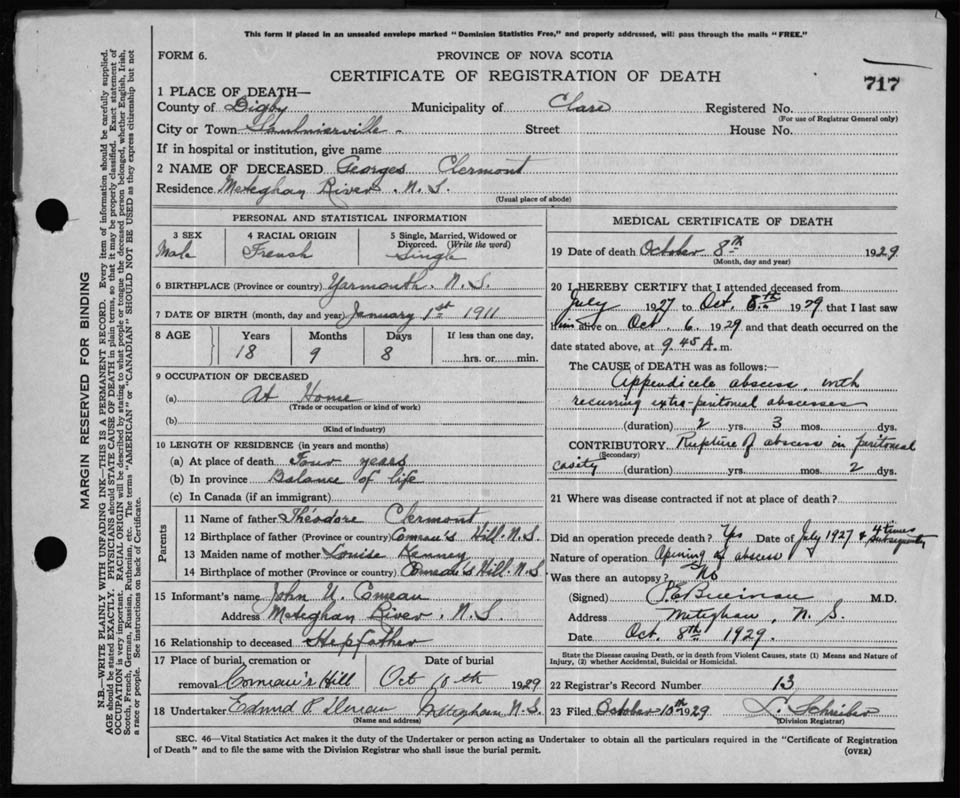 This form if placed in an unsealed envelope marked "Dominion Statistics Free," and properly addressed, will pass through the mails "FREE."
FORM 6.
PROVINCE OF NOVA SCOTIA
CERTIFICATE OF REGISTRATION OF DEATH
717
1 PLACE OF DEATH—
County of Digby Municipality of Clare Registered No.
(For use of Registrar General only)
City or Town Saulnierville Street House No.
If in hospital or institution, give name
2 NAME OF DECEASED Georges Clermont
Residence Meteghan River. N.S.
(Usual place of abode)
PERSONAL AND STATISTICAL INFORMATION
3 SEX 4 RACIAL ORIGIN 5 Single, Married, Widowed or Divorced. (Write the word)
Male French Single
6 BIRTHPLACE (Province or country) Yarmouth. N.S.
7 DATE OF BIRTH (month, day and year) January 1st 1911
8 AGE Years Months Days If less than one day,
18 9 8 hrs. or min.
9 OCCUPATION OF DECEASED
(a) At Home
(Trade or occupation or kind of work)
(b)
(Kind of industry)
10 LENGTH OF RESIDENCE (in years and months)
(a) At place of death Four years
(b) In province Balance of life
(c) In Canada (if an immigrant)
Parents
11 Name of father Théodore Clermont
12 Birthplace of father (Province or country) Comeau's Hill. N.S.
13 Maiden name of mother Louise Kenney
14 Birthplace of mother (Province or country) Comeau's Hill. N.S.
15 Informant's name John U. Comeau
Address Meteghan River. N.S.
16 Relationship to deceased Stepfather
17 Place of burial, cremation or Date of burial
removal Comeau's Hill Oct 10th 1929
18 Undertaker Edmid P. Meteghan N.S.
(Name and address)
MEDICAL CERTIFICATE OF DEATH
19 Date of death October 8th 1929
(Month, day and year)
20 I HEREBY CERTIFY that I attended deceased from
July 1927 to Oct. 8th 1929 that I last saw
him alive on Oct. 6 1929 and that death occurred on the
date stated above, at 9.45 A.m.
The CAUSE of DEATH was as follows:—
Appendicele abscess, with
recurring extra-peritonial abscesses
(duration) 2 yrs. 3 mos. dys.
CONTRIBUTORY Rupture of abscess in peritonial
(Secondary)
cavity (duration) yrs. mos. 2 dys.
21 Where was disease contracted if not at place of death?
Did an operation precede death? Yes Date of July 1927 & 4 times subsequently
Nature of operation Opening of abscess
Was there an autopsy? No
(Signed) M.D.
Address Meteghan, N.S.
Date Oct. 8th 1929.
State the Disease causing Death, or in death from Violent Causes, state (1) Means and Nature of Injury, (2) whether Accidental, Suicidal or Homicidal.
22 Registrar's Record Number 13
23 Filed October 10th 1929 L. Schriber
(Division Registrar)
SEC. 46—Vital Statistics Act makes it the duty of the Undertaker or person acting as Undertaker to obtain all the particulars required in the "Certificate of Registration
of Death" and to file the same with the Division Registrar who shall issue the burial permit.
(OVER)
MARGIN RESERVED FOR BINDING
N.B.—WRITE PLAINLY WITH UNFADING INK—THIS IS A PERMANENT RECORD. Every item of information should be carefully supplied.
AGE should be stated EXACTLY. PHYSICIANS should STATE CAUSE OF DEATH in plain terms, so that it may be properly classified. Exact statement of
OCCUPATION is very important. RACIAL ORIGIN will be described by stating to what people or tongue the deceased person belonged, whether English, Irish,
Scotch, French, German, Russian, Ruthenian, etc. The terms "AMERICAN" or "CANADIAN" SHOULD NOT BE USED as they express citizenship but not
a race or people. See instructions on back of Certificate.